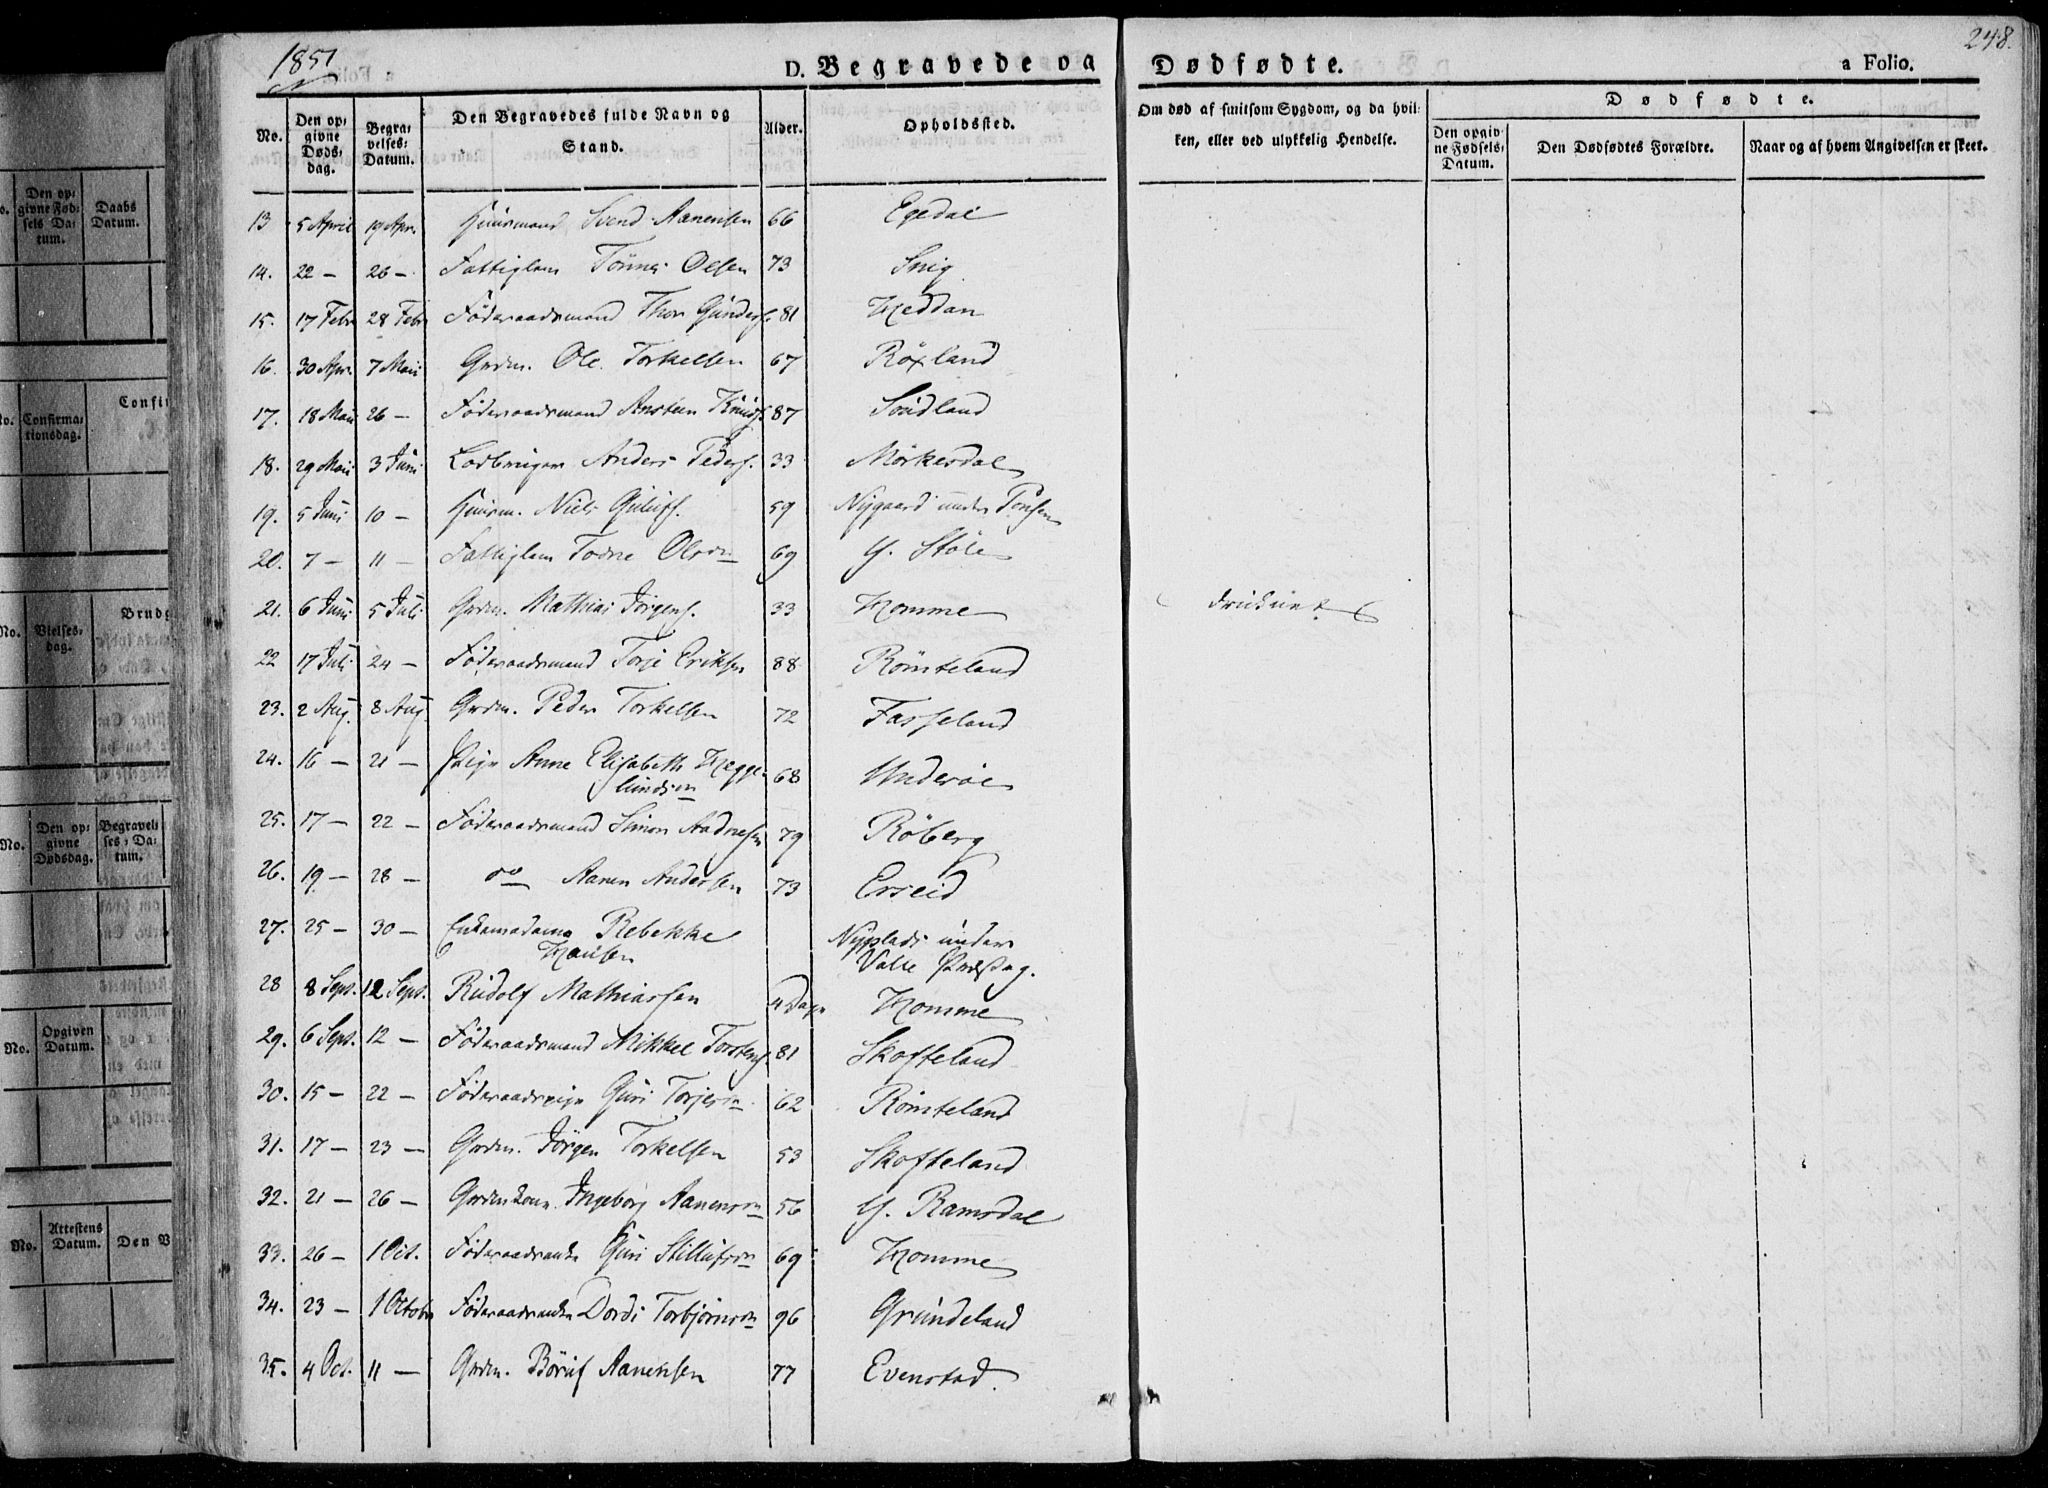 1851
D. Begravede og Dødfødte.
248.
a Folio.
No.
Den op-
givne
Døds-
dag.
Begra-
velses-
Datum.
Den Begravedes fulde Navn og
Stand.
Alder.
Opholdssted.
Om død af smitsom Sygdom, og da hvil-
ken, eller ved ulykkelig Hendelse.
Dødfødte.
Den opgiv-
ne Fødsels-
Datum.
Den Dødfødtes Forældre.
Naar og af hvem Angivelsen er skeet.
13 5 April 19 Apr. Huusmand Svend Aanensen 66 Egedal
14. 22 — 26 — Fattiglem Tönnes Olsen 73 Snig
15. 17 Febr 28 Febr Föderaadsmand Thor Gunders. 81 Heddan
16. 30 Apr. 7 Mai Grdm. Ole Torkelsen 67 Röxland
17. 18 Mai 26 — Föderaadsmand Ansteen Knuds. 87 Sundland
18. 29 Mai 3 Juni Anders Peders. 33 Mörkesdal
19. 5 Juni 10 — Huusm. Niels 59 Nygaard under
20. 7 — 11 — Fattiglem Todne Olsdn 69 Y. Stöle
21. 6 Juni 5 Juli Grdm. Mathias Jörgens. 33 Homme druknet
22 17 Juli 24 — Föderaadsmand Torje Eriksen 88 Römteland
23. 2 Aug. 8 Aug Grdm. Peder Torkelsen 72 Fasseland
24. 16 — 21 — Pige Anne Elisabeth Hegge-
lundsen 68 Underöe
25. 17 — 22 — Föderaadsmand Simon Aadnesen 79 Röberg
26. 19 — 28 — do Aanen Andersen 73 Erseid
27. 25 — 30 — Enkemadame Rebekke
Hansen
Nyplads under
Valle Præsteg.
28 8 Sept. 12 Sept. Rudolf Mathiassen 4 Dage Homme
29. 6 Sept. 12 — Föderaadsmand Mikkel Torstens. 81 Skofteland
30. 15 — 22 — Föderaadspige Guri Torjesdn 62 Römteland
31. 17 — 23 — Grdm. Jörgen Torkelsen 53 Skofteland
32. 21 — 26 — Grdmkone Ingeborg Aanensdn 56 Y. Ramsdal
33. 26 — 1 Oct. Föderaadsenke Guri 69 Homme
34. 23 — 1 Octobr Föderaadsenke Dordi Torbjörnsdn 96 Grundeland
35. 4 Oct. 11 — Grdm. Böruf Aanensen 77 Evenstad.
Den op-
givne Fød-
sels Da-
tum.
Daabs
Datum.
Confirma-
tionsdag.
Confi
No.
Vielses-
dag.
Brudg
No.
Den op-
givne
Dødsdag.
Begravel-
ses-Da-
tum.
No.
Opgiven
Datum.
No.
Attestens
Datum.
Den V